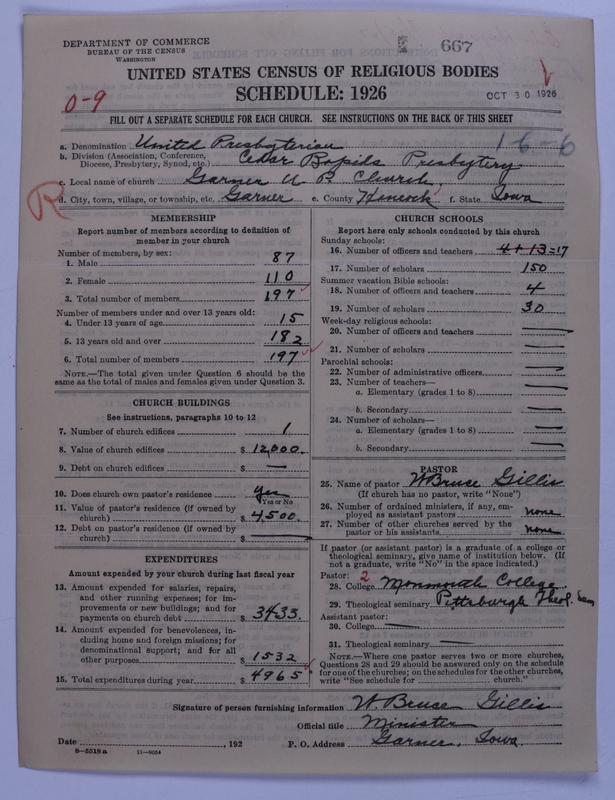 DEPARTMENT OF COMMERCE
BUREAU OF THE CENSUS
WASHINGTON
667
UNITED STATES CENSUS OF RELIGIOUS BODIES
SCHEDULE: 1926
OCT 30 1926
0-9
FILL OUT A SEPARATE SCHEDULE FOR EACH CHURCH. SEE INSTRUCTIONS ON THE BACK OF THIS SHEET
a. Denomination United Presbyterian
16-6
b. Division (Association, Conference, Diocese, Presbytery, Synod, etc.) Cedar Rapids Presbytery
c. Local name of church Garner U P Church
R
d. City, town, village, or township, etc. Garner e. County Hancock f. State Iowa
MEMBERSHIP
Report number of members according to definition of
member in your church
Number of members, by sex:
1. Male 87
2. Female 110
3. Total number of members 197
Number of members under and over 13 years old:
4. Under 13 years of age 15
5. 13 years old and over 182
6. Total number of members 197
NOTE.—The total given under Question 6 should be
same as the total of males and females given under Question 3.
CHURCH BUILDINGS
See instructions, paragraphs 10 to 12
7. Number of church edifices 1
8. Value of church edifices $ 12,000.
9. Debt on church edifices $ —
10. Does church own pastor's residence Yes
Yes or No
11. Value of pastor's residence (if owned by
church) $ 4,500.
12. Debt on pastor's residence (if owned by
church) $ —
EXPENDITURES
Amount expended by your church during last fiscal year
13. Amount expended for salaries, repairs,
and other running expenses; for im-
provements or new buildings; and for
payments on church debt $ 3433.
14. Amount expended for benevolences, in-
cluding home and foreign missions; for
denominational support; and for all
other purposes $ 1532
15. Total expenditures during year $ 4965
CHURCH SCHOOLS
Report here only schools conducted by this church
Sunday schools:
16. Number of officers and teachers 4+13=17
17. Number of scholars 150
Summer vacation Bible schools:
18. Number of officers and teachers 4
19. Number of scholars 30
Week-day religious schools:
20. Number of officers and teachers —
21. Number of scholars —
Parochial schools:
22. Number of administrative officers —
23. Number of teachers—
a. Elementary (grades 1 to 8) —
b. Secondary —
24. Number of scholars—
a. Elementary (grades 1 to 8) —
b. Secondary —
PASTOR
25. Name of pastor W Bruce Gillis
(If church has no pastor, write "None")
26. Number of ordained ministers, if any, em-
ployed as assistant pastors none
27. Number of other churches served by the
pastor or his assistants none
If pastor (or assistant pastor) is a graduate of a college or
theological seminary, give name of institution below. (If
not a graduate, write "No" in the space indicated.)
Pastor: 2
28. College Monmouth College
29. Theological seminary Pittsburgh Theol. Sem
Assistant pastor:
30. College —
31. Theological seminary —
NOTE.—Where one pastor serves two or more churches,
Questions 28 and 29 should be answered only on the schedule
for one of the churches; on the schedules for the other churches,
write "See schedule for church."
Signature of person furnishing information W. Bruce Gillis
Official title Minister
Date , 192 P. O. Address Garner, Iowa.
8-5518 a 11-9054